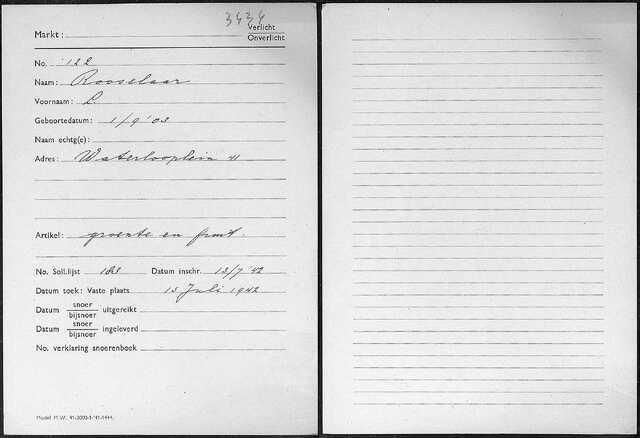 3434
Markt:
Verlicht
Onverlicht
No. 122
Naam: Rooselaar
Voornaam: L
Geboortedatum: 1/9 '03
Naam echtg(e):
Adres: Waterlooplein 41
Artikel: groente en fruit.
No. Soll.lijst 183 Datum inschr. 13/7 '42
Datum toek: Vaste plaats 15 Juli 1942
Datum snoer uitgereikt
bijsnoer
Datum snoer ingeleverd
bijsnoer
No. verklaring snoerenboek
Model M.W.